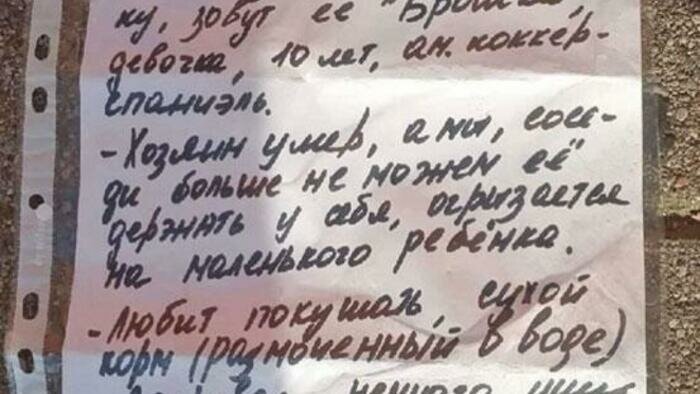 ку, зовут её "Брошка",
девочка, 10 лет, ан. коккер-
спаниэль.
- Хозяин умер, а мы, сосе-
ди больше не можем её
держать у себя, огрызается
на маленького ребёнка.
- Любит покушать, сухой
корм (размоченный в воде)
немного